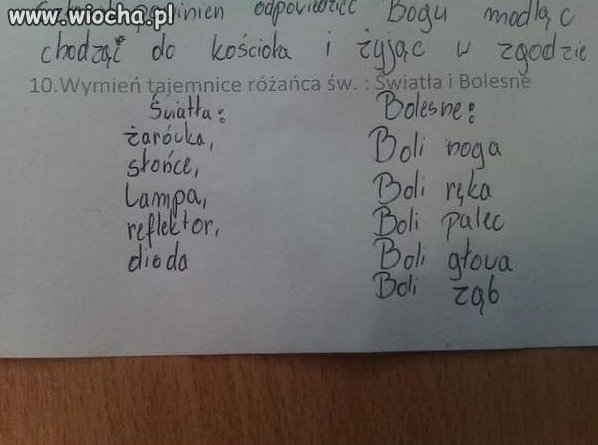 www.wiocha.pl
odpowiedzieć Bogu modląc
chodząc do kościoła i żyjąc w zgodzie
10.Wymień tajemnice różańca św. : Światła i Bolesne
Światła:
żarówka,
słońce,
Lampa,
reflektor,
dioda
Bolesne:
Boli noga
Boli ręka
Boli palec
Boli głowa
Boli ząb